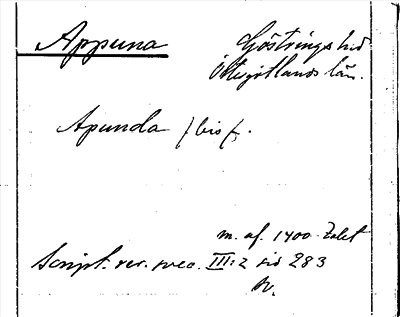 Appuna Göstrings hd
Östergötlands län.
Apunda /bis/.
m. af. 1400-talet
Script. rer. svec. III:2 sid 283